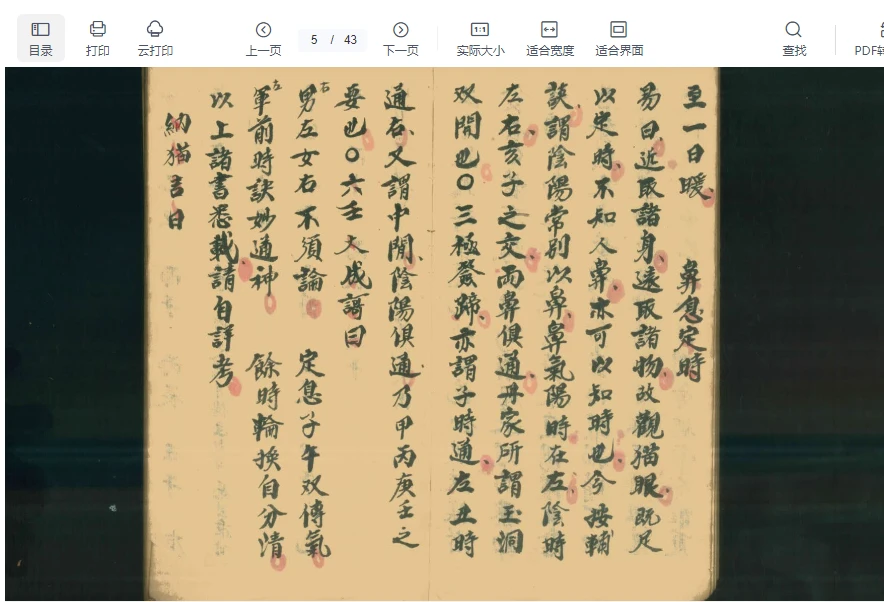 目录
打印
云打印
上一页
5 / 43
下一页
1:1
实际大小
适合宽度
适合界面
查找
PDF转
至一日暖 鼻息定時
易曰近取諸身遠取諸物故觀猫眼既足
以定時不知人鼻亦可以知時也今按輔
談謂陰陽常別以鼻鼻氣陽時在左陰時
左右亥子之交両鼻俱通丹家所謂玉洞
双開也〇三極發蹄亦謂子時通左丑時
通右又謂中間陰陽俱通乃甲丙庚壬之
要也〇六壬大成謌曰
右
男左女右不須論 定息子午双傳氣
左
軍前時訣妙通神 餘時輪換自分清
以上諸書悉載請自詳考
納猫吉日